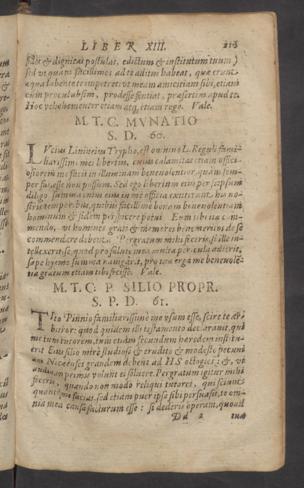 LIBER XIII.
& dignitas postulat, edictum & institutum tuum)
sed ut quam facillimos ad te aditus habeat, quæ erunt
æqua
cum procul absim, prodesse sentiat, præsertim apud te.
Hoc vehementer etiam atq; etiam rogo. Vale.
M. T. C. MVNATIO
S. D. 60.
LVcius Livineius Trypho, est omnino L. Reguli fami-
liarissimi mei libertus, cuius calamitas etiam officio-
siorem me facit in illum: nam benevolentior, quàm sem-
per fui, esse non possum. Sed ego libertum eius per seipsum
diligo: summa enim eius in me officia extiterunt his no-
stris temporibus, quibus facillimè bonam benevolentiam
hominum & fidem perspicere potui. Eum tibi ita com-
mendo, ut homines grati & memores bene meritos de se
commendare debent. Pergratum mihi feceris, si ille in-
tellexerit se, quod pro salute mea multa pericula adierit,
sæpe hyeme summa navigarit, pro tua erga me benevolen-
tia gratum etiam tibi fecisse. Vale.
M. T. C. P. SILIO PROPR.
S. P. D. 61.
TIto Pinnio familiarissimè me usum esse, scire te ar-
bitror: quod quidem ille testamento declaravit, qui
me tum tutorem, tum etiam secundum hæredem institu-
erit. Eius filio mirè studioso & erudito & modesto pecuni-
am Nicæenses grandem debent, ad HS octogies; & ut
audio, in primis volunt ei solvere. Pergratum igitur mihi
feceris, quando non modo reliqui tutores, qui sciunt
quanti me facias, sed etiam puer ipse sibi persuasit, te om-
nia mea causa facturum esse: si dederis operam, quoad
Dd 2 tua